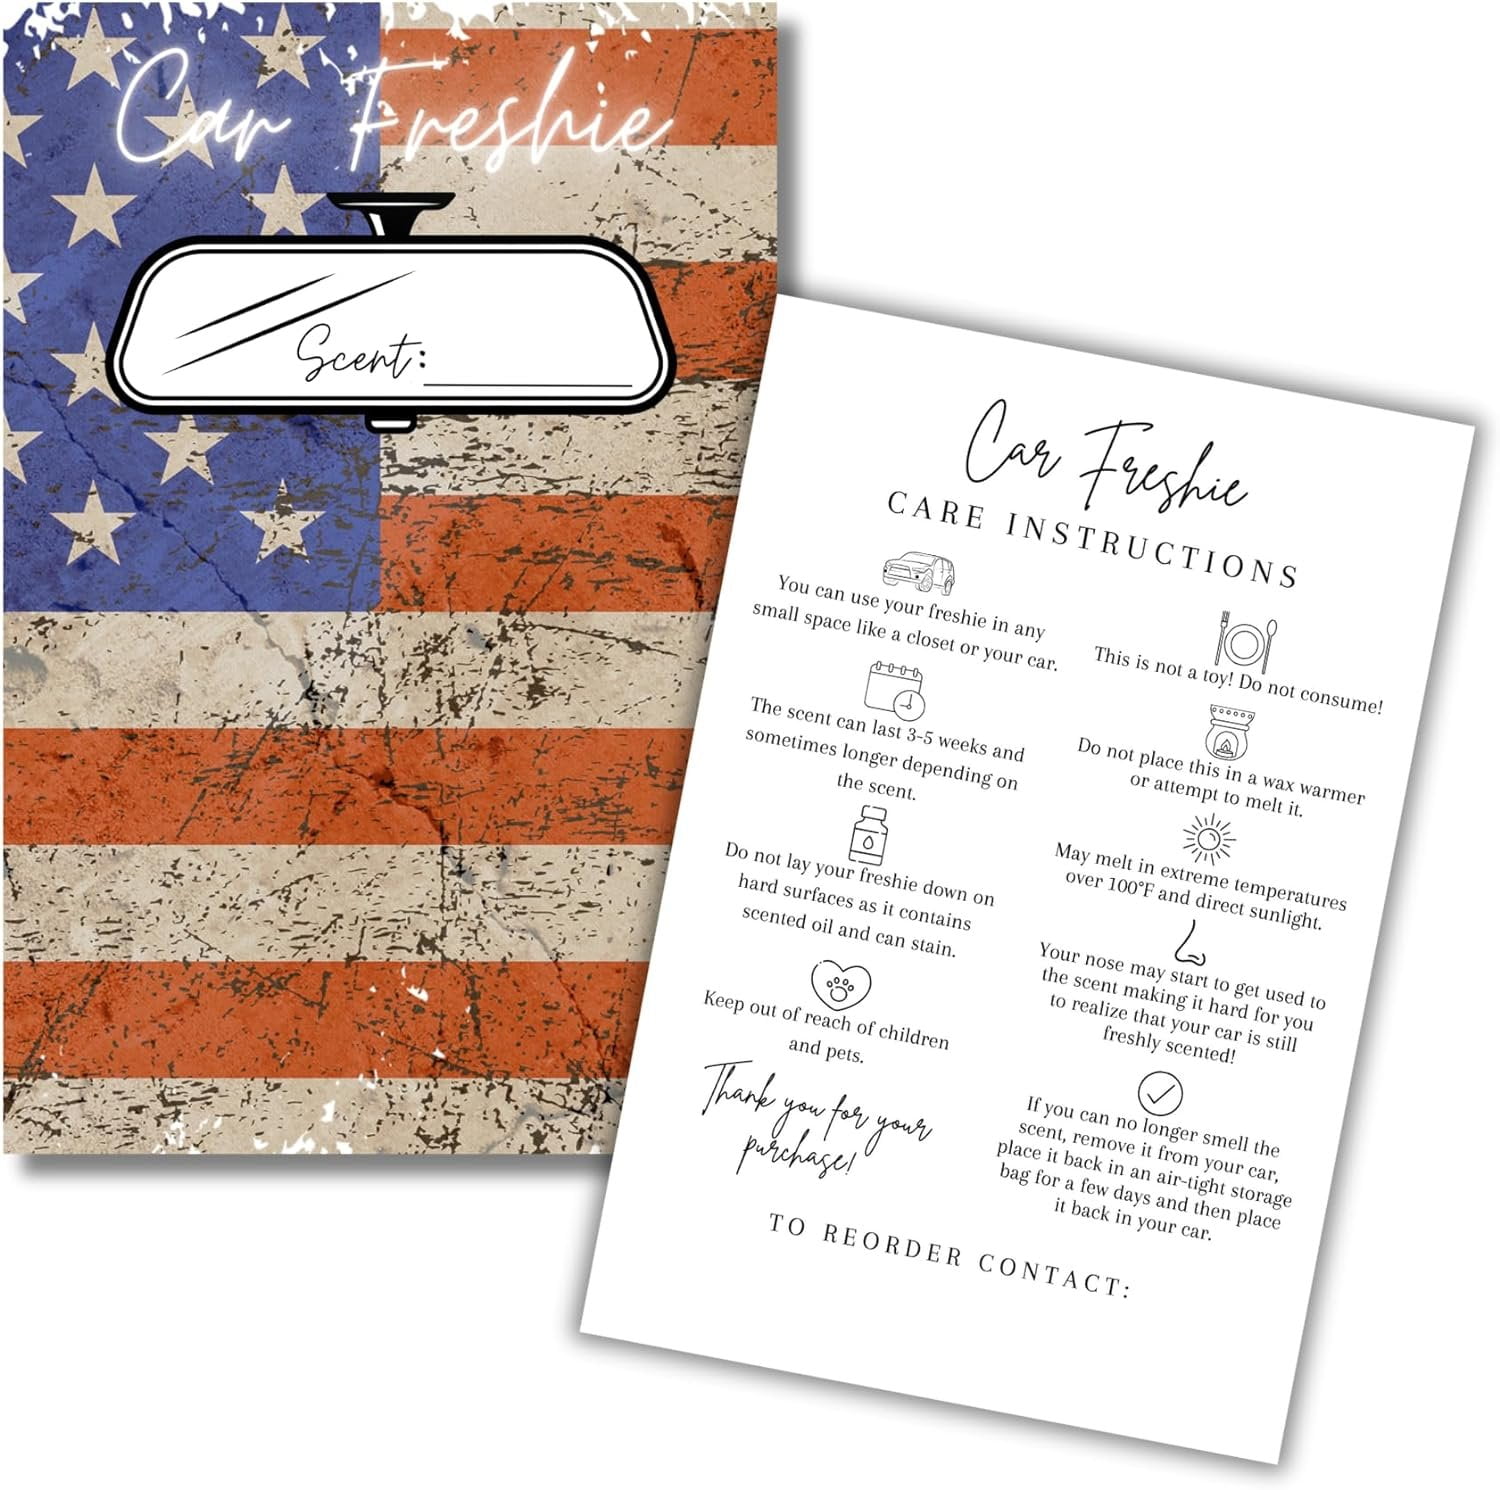 Car Freshie
Scent:
Car Freshie
CARE INSTRUCTIONS
You can use your freshie in any
small space like a closet or your car.
The scent can last 3-5 weeks and
sometimes longer depending on
the scent.
Do not lay your freshie down on
hard surfaces as it contains
scented oil and can stain.
Keep out of reach of children
and pets.
Thank you for your
purchase!
This is not a toy! Do not consume!
Do not place this in a wax warmer
or attempt to melt it.
May melt in extreme temperatures
over 100°F and direct sunlight.
Your nose may start to get used to
the scent making it hard for you
to realize that your car is still
freshly scented!
If you can no longer smell the
scent, remove it from your car,
place it back in an air-tight storage
bag for a few days and then place
it back in your car.
TO REORDER CONTACT: